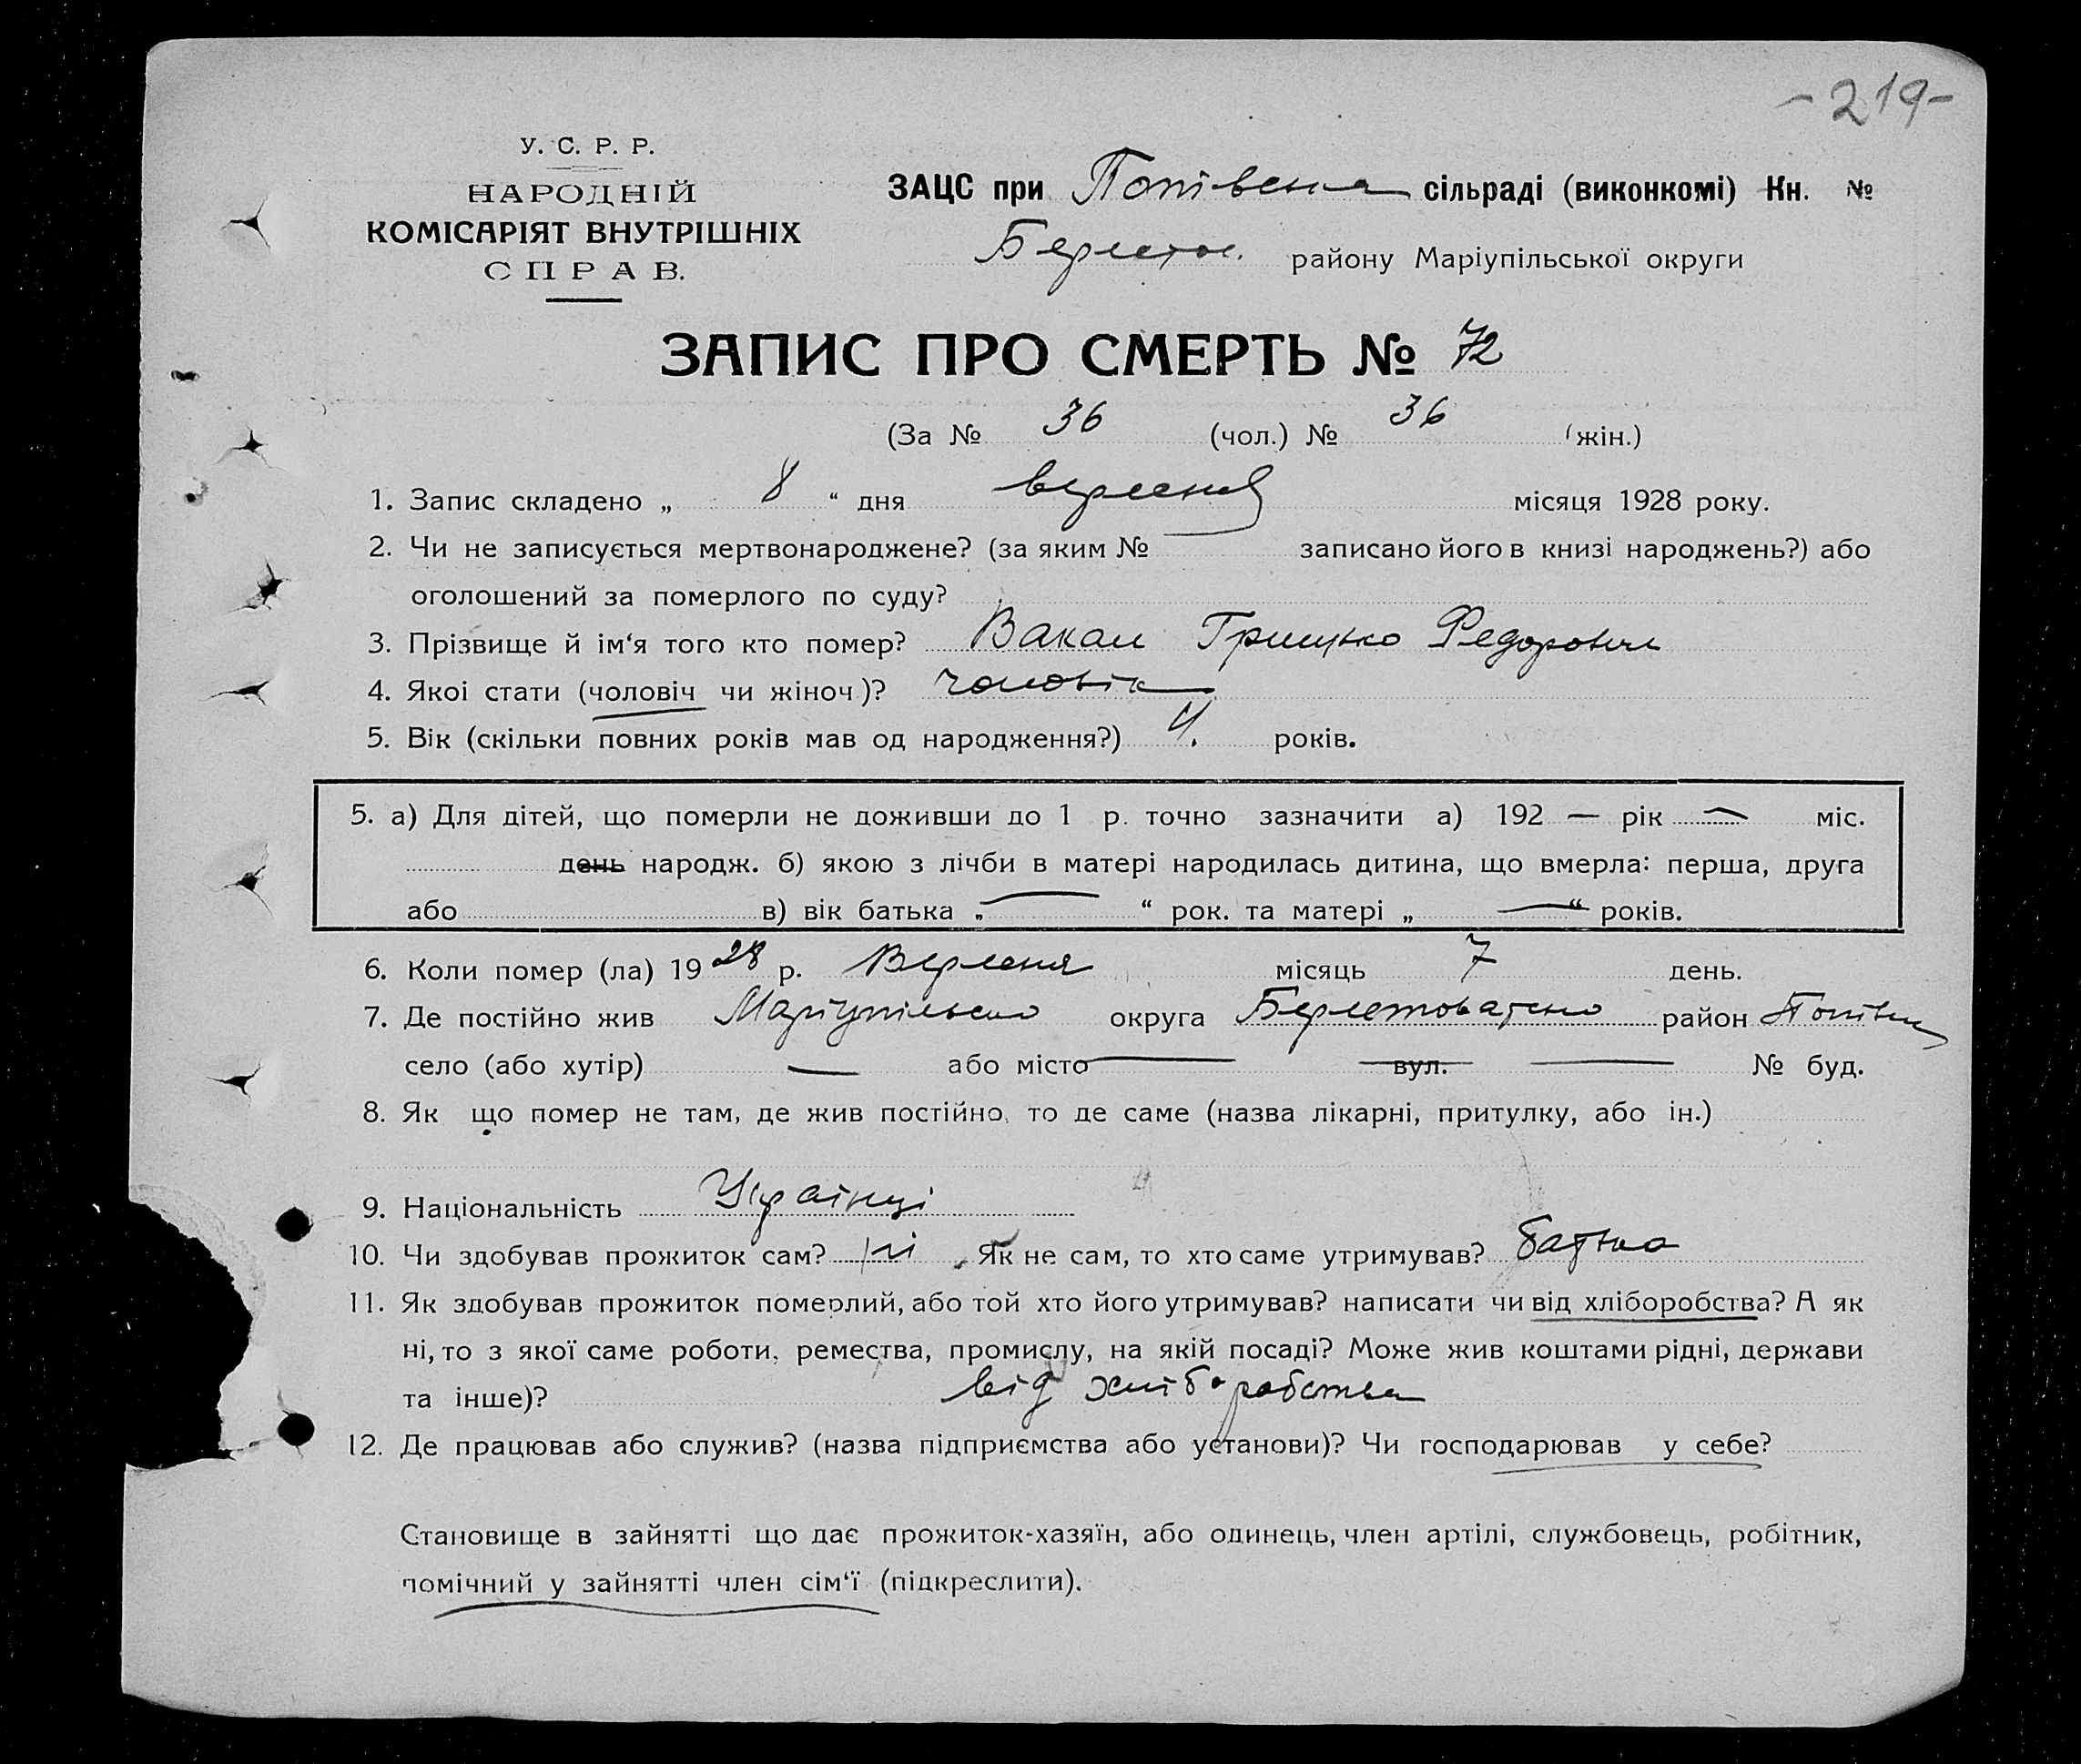 -219-
У. С. Р. Р.
НАРОДНІЙ
КОМІСАРІЯТ ВНУТРІШНІХ
СПРАВ.
ЗАЦС при Попівська сільраді (виконкомі) Кн. №
Берестов. району Маріупільської округи
ЗАПИС ПРО СМЕРТЬ № 72
(За № 36 (чол.) № 36 (жін.)
1. Запис складено „ 8 “ дня вересня місяця 1928 року.
2. Чи не записується мертвонароджене? (за яким № записано його в книзі народжень?) або
оголошений за померлого по суду?
3. Прізвище й ім‘я того кто помер? Вакал Грицько Федорович
4. Якоі стати (чоловіч чи жіноч)? чоловік
5. Вік (скільки повних років мав од народження?) 4. років.
5. а) Для дітей, що померли не доживши до 1 р. точно зазначити а) 192 — рік — міс.
день народж. б) якою з лічби в матері народилась дитина, що вмерла: перша, друга
або в) вік батька „ — “ рок. та матері „ — “ років.
6. Коли помер (ла) 1928 р. Вересня місяць 7 день.
7. Де постійно жив Маріупільсько округа Берестоватсько район
село (або хутір) — або місто — вул. — № буд.
8. Як що помер не там, де жив постійно, то де саме (назва лікарні, притулку, або ін.)
9. Національність Українці
10. Чи здобував прожиток сам? ні. Як не сам, то хто саме утримував? батько
11. Як здобував прожиток померлий, або той хто його утримував? написати чи від хліборобства? А як
ні, то з якої саме роботи, ремества, промислу, на якій посаді? Може жив коштами рідні, держави
та інше)? від хліборобства
12. Де працював або служив? (назва підприємства або установи)? Чи господарював у себе?
Становище в зайнятті що дає прожиток-хазяїн, або одинець, член артілі, службовець, робітник,
помічний у зайнятті член сім‘ї (підкреслити).